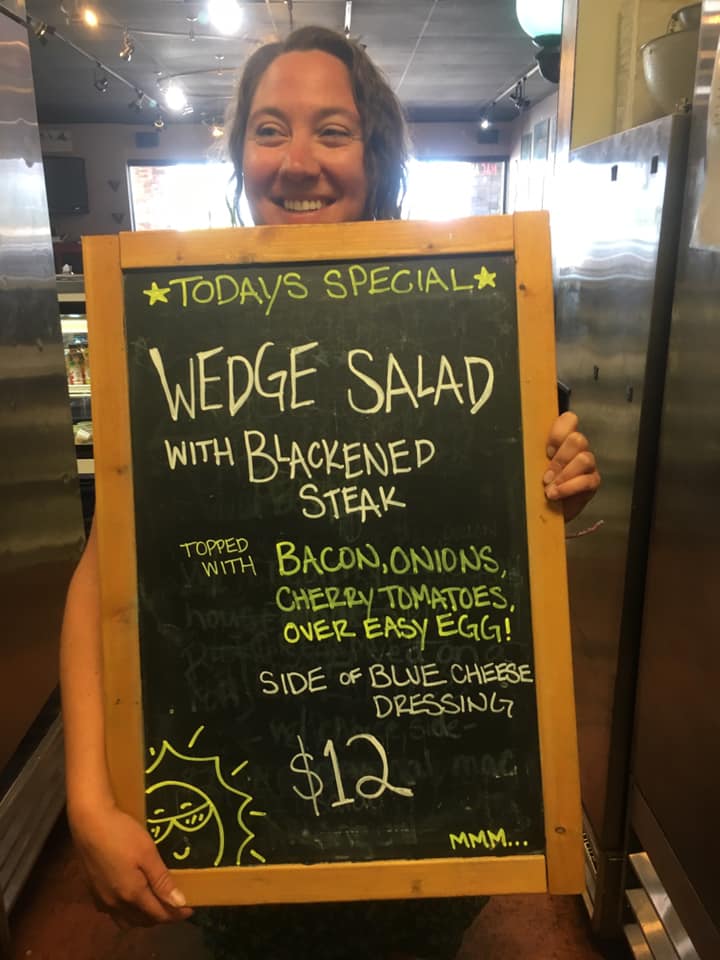 ★TODAYS SPECIAL★
WEDGE SALAD
WITH BLACKENED
STEAK
TOPPED
WITH
BACON, ONIONS,
CHERRY TOMATOES,
OVER EASY EGG!
SIDE OF BLUE CHEESE
DRESSING
$12
MMM...